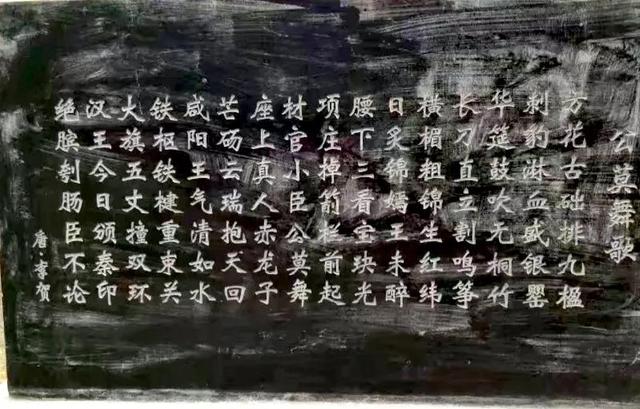 公莫舞歌
方花古础排九楹
刺豹淋血盛银罂
华筵鼓吹无桐竹
长刀直立割鸣筝
横楣粗锦生红纬
日炙锦嫣王未醉
腰下三看宝玦光
项庄掉箭拦前起
材官小臣公莫舞
座上真人赤龙子
芒砀云瑞抱天回
咸阳王气清如水
铁枢铁楗重束关
大旗五丈撞双环
汉王今日颁秦印
绝膑刳肠臣不论
唐·李贺